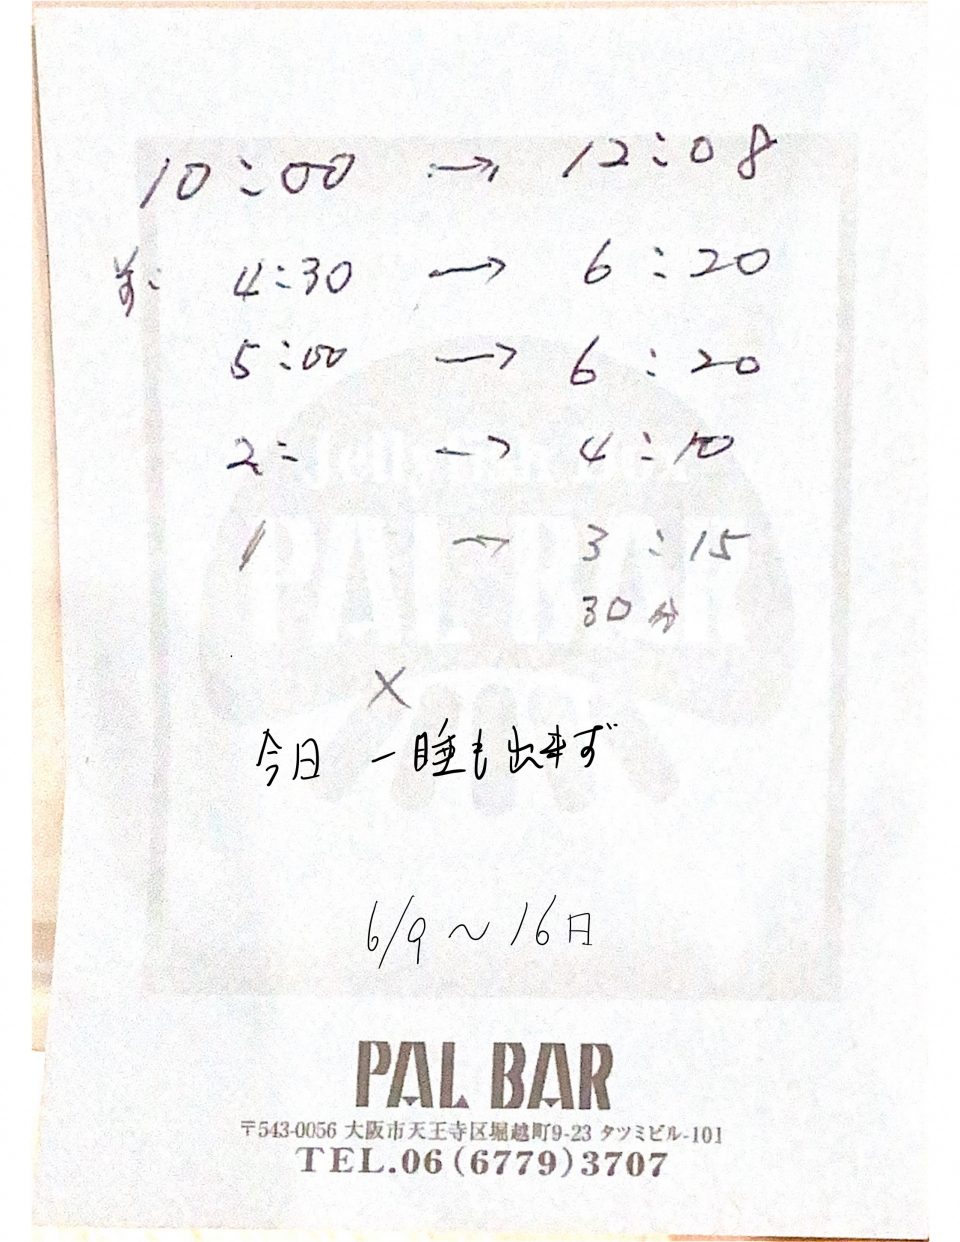 10:00 → 12:08
4:30 → 6:20
5:00 → 6:20
2: → 4:10
1 → 3:15
30分
×
今日 一睡も出来ず
6/9～16日
PAL BAR
〒543-0056 大阪市天王寺区堀越町9-23 タツミビル-101
TEL.06(6779)3707